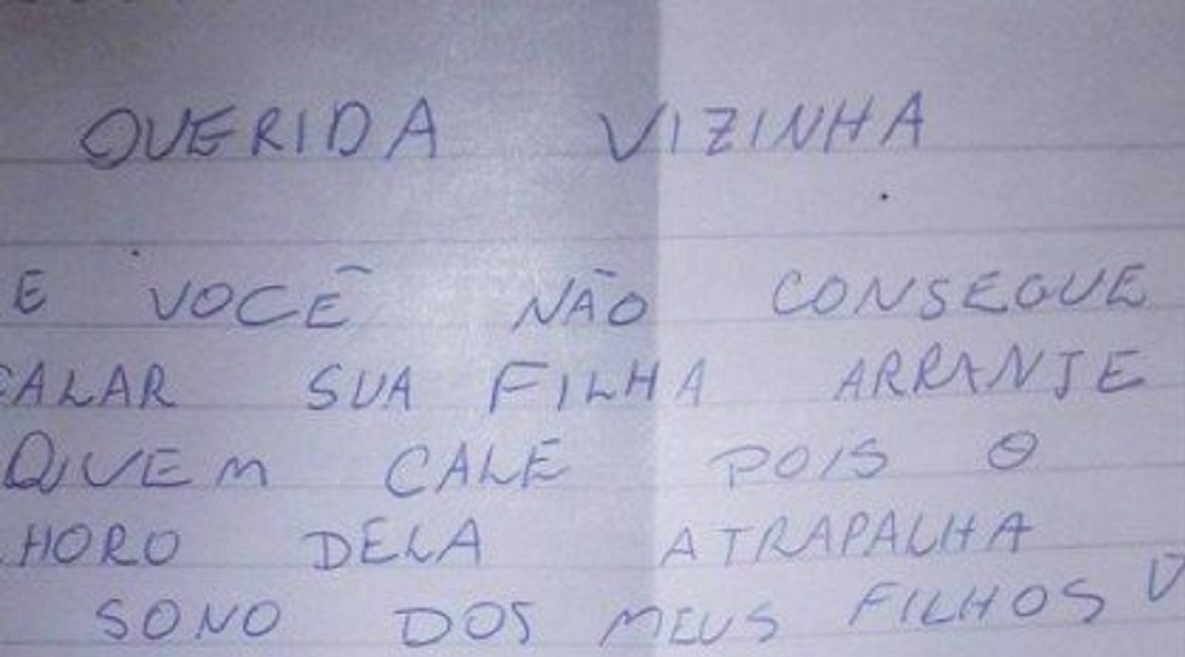 QUERIDA VIZINHA
E VOCÊ NÃO CONSEGUE
CALAR SUA FILHA ARRANJE
QUEM CALE POIS O
HORO DELA ATRAPALHA
SONO DOS MEUS FILHOS